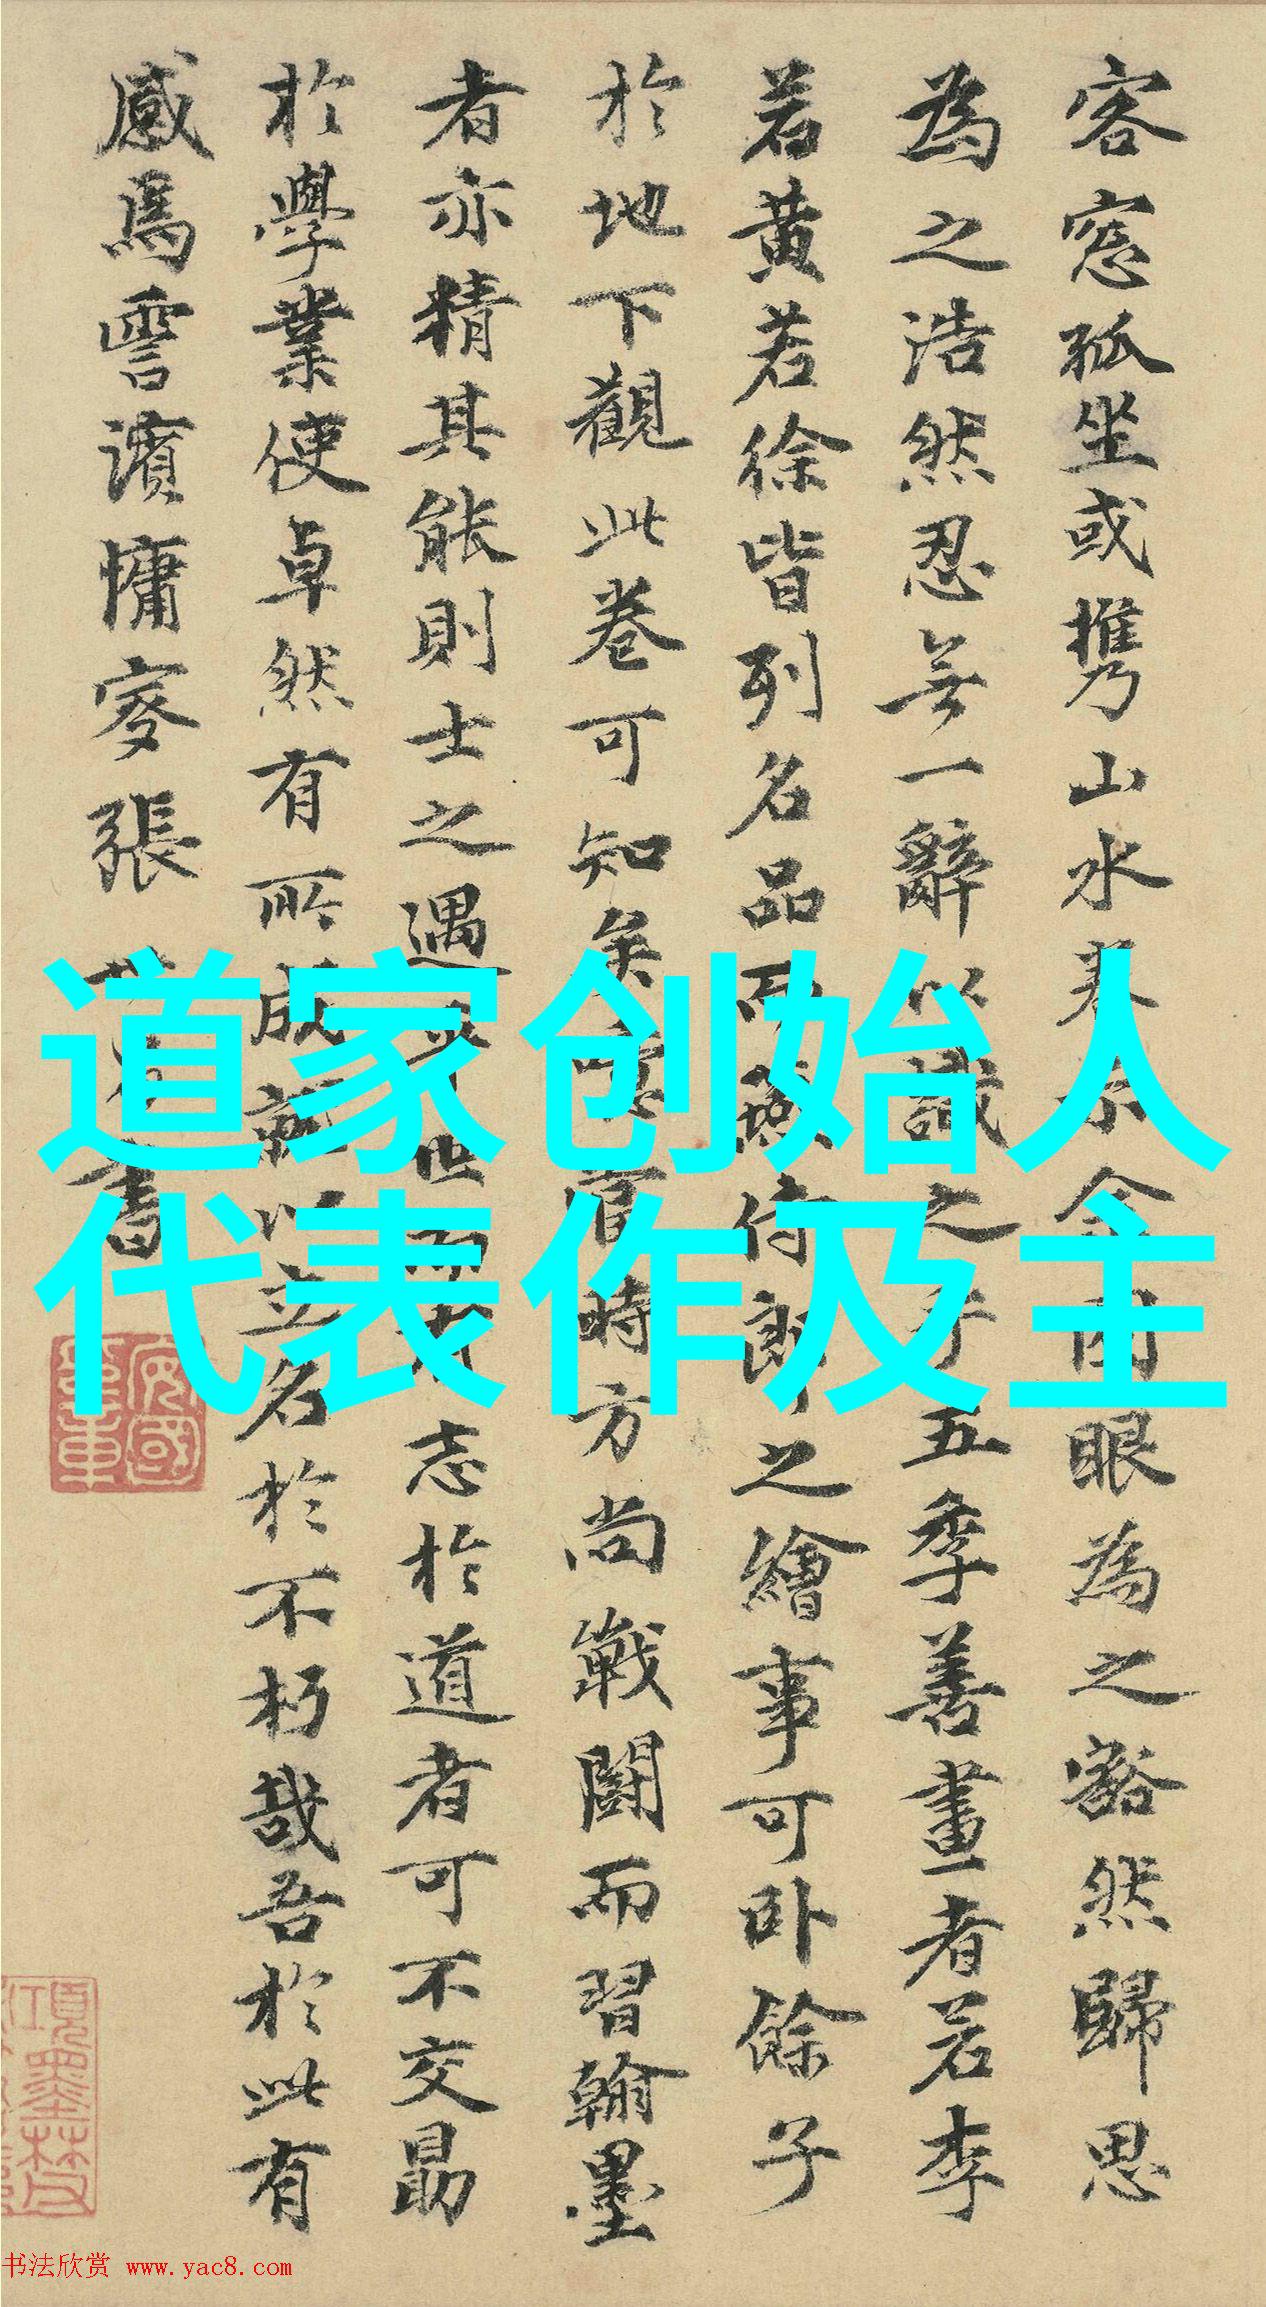 客窓孤坐或携山水卷
眼為之豁然歸思
為之浩然忍無一辭以識之
五季善畫者若李
若黄若徐皆列名品而燕侍郎之繪事可卧餘子
於地下觀此卷可知矣
時方尚戰鬪而習翰墨
者亦精其能則士之遇
志於道者可不交勗
於學業使卓然有所成就以立名於不朽哉吾於此有
感焉雲濱慵叜張
書
道家创始人
代表作及主
书法欣赏 www.yac8.com